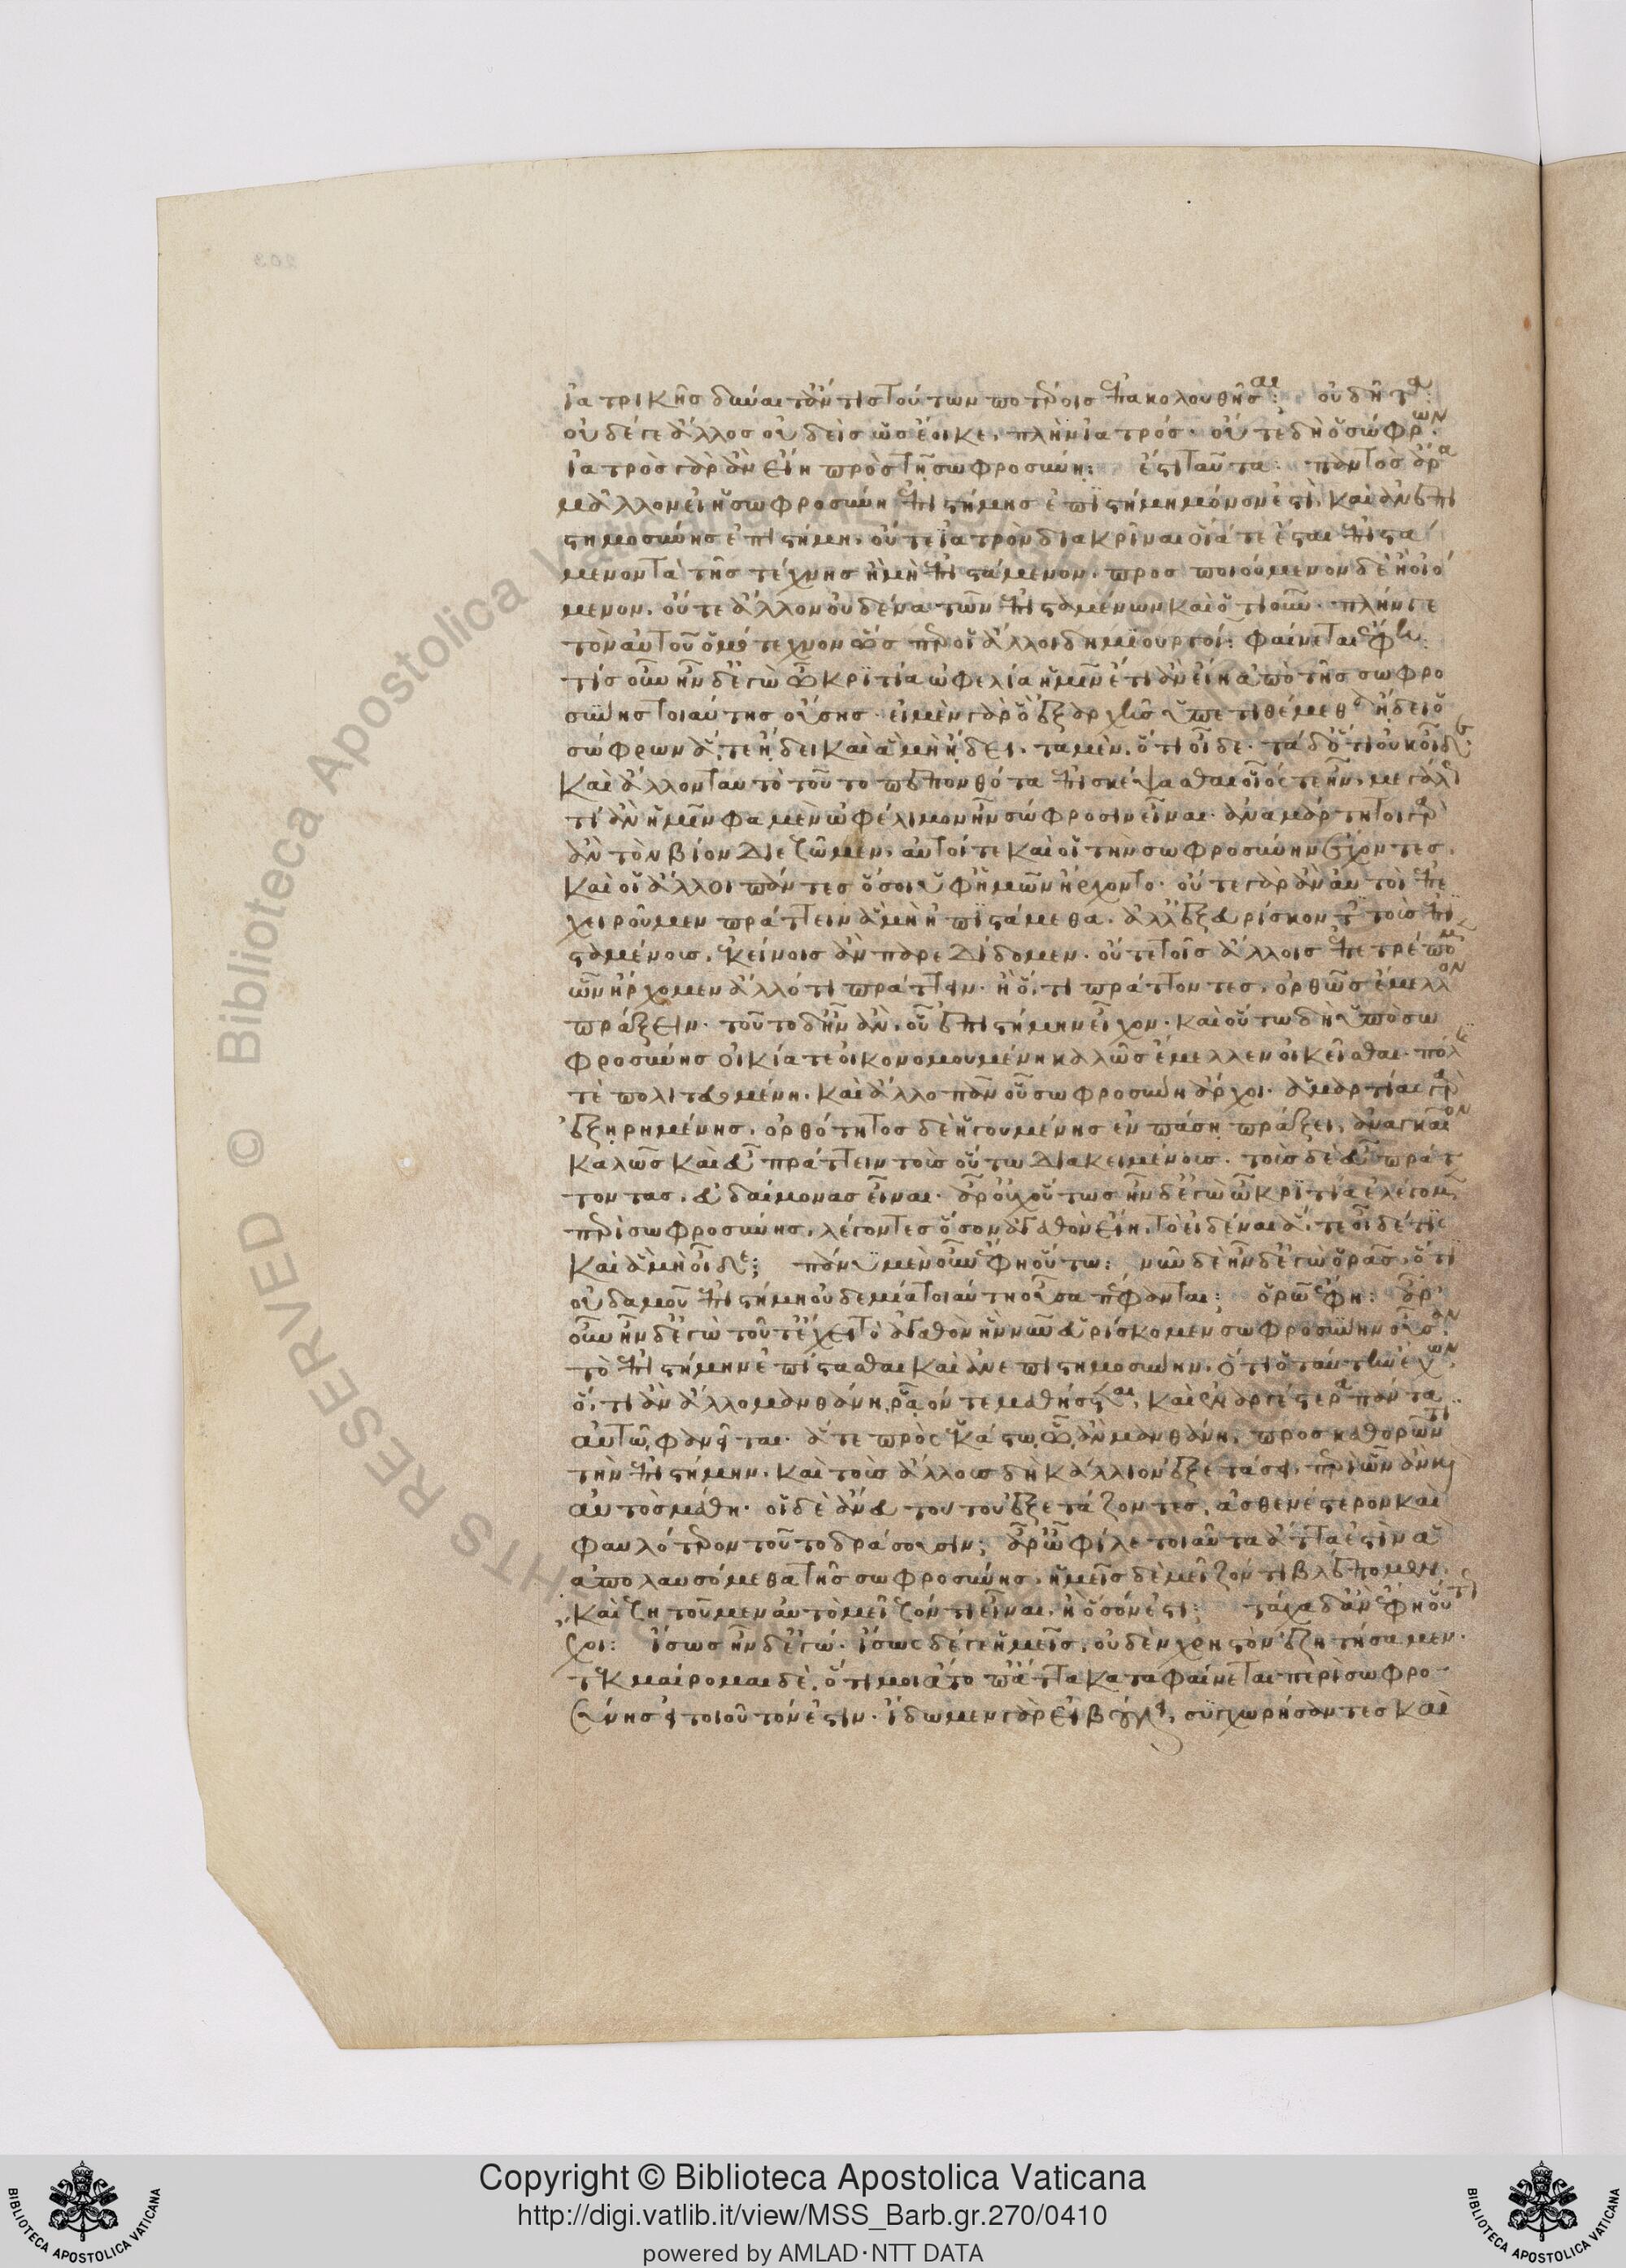 ἰατρικῆς δύναιτ' ἄν τις τούτων ποτέροις ἐπακολουθῆσαι: οὐ δῆτα:
οὐδέ γε ἄλλος οὐδεὶς ὡς ἔοικε, πλὴν ἰατρός· οὔτε δὴ ὁ σώφρων·
ἰατρὸς γὰρ ἂν εἴη πρὸς τῇ σωφροσύνῃ: ἔστι ταῦτα: παντὸς ἄρα
μᾶλλον εἰ ἡ σωφροσύνη ἐπιστήμης ἐπιστήμη μόνον ἐστὶ, καὶ ἀνεπι
στημοσύνης ἐπιστήμη, οὔτε ἰατρὸν διακρῖναι οἵα τε ἔσται ἐπιστά
μενον τὰ τῆς τέχνης ἢ μὴ ἐπιστάμενον, προσποιούμενον δὲ ἢ οἰό
μενον, οὔτε ἄλλον οὐδένα τῶν ἐπισταμένων καὶ ὁτιοῦν· πλήν γε
τὸν αὑτοῦ ὁμότεχνον ὥσπερ οἱ ἄλλοι δημιουργοί: φαίνεται ἔφη:
τίς οὖν ἦν δ' ἐγὼ ὦ κριτία ὠφελία ἡμῖν ἔτι ἂν εἴη ἀπὸ τῆς σωφρο
σύνης τοιαύτης οὔσης· εἰ μὲν γὰρ ὃ ἐξ ἀρχῆς ὑπετιθέμεθα ᾔδει ὁ
σώφρων ἅ τε ᾔδει καὶ ἃ μὴ ᾔδει, τὰ μὲν, ὅτι οἶδε· τὰ δ' ὅτι οὐκ οἶδε·
καὶ ἄλλον ταὐτὸ τοῦτο πεπονθότα ἐπισκέψασθαι οἷός τε ἦν, μεγαλωστὶ
ἂν ἡμῖν φαμὲν ὠφέλιμον ἦν σώφροσιν εἶναι· ἀναμάρτητοι γὰρ
ἂν τὸν βίον διεζῶμεν, αὐτοί τε καὶ οἱ τὴν σωφροσύνην ἔχοντες,
καὶ οἱ ἄλλοι πάντες ὅσοι ὑφ' ἡμῶν ἤρχοντο· οὔτε γὰρ ἂν αὐτοὶ ἐπε
χειροῦμεν πράττειν ἃ μὴ ἠπιστάμεθα· ἀλλ' ἐξευρίσκοντες τοὺς ἐπι
σταμένους, ἐκείνοις ἂν παρεδίδομεν· οὔτε τοῖς ἄλλοις ἐπετρέπομεν
ὧν ἤρχομεν ἄλλό τι πράττειν· ἢ ὅ, τι πράττοντες, ὀρθῶς ἔμελλον
πράξειν· τοῦτο δ' ἦν ἂν, οὗ ἐπιστήμην εἶχον· καὶ οὕτω δὴ ὑπὸ σω
φροσύνης οἰκία τε οἰκονομουμένη καλῶς ἔμελλεν οἰκεῖσθαι· πόλις
τὲ πολιτευομένη, καὶ ἄλλο πᾶν οὗ σωφροσύνη ἄρχοι· ἁμαρτίας γὰρ
ἐξῃρημένης, ὀρθότητος δὲ ἡγουμένης ἐν πάσῃ πράξει, ἀναγκαῖον
καλῶς καὶ εὖ πράττειν τοὺς οὕτω διακειμένους· τοὺς δὲ εὖ πράτ
τοντας, εὐδαίμονας εἶναι· ἆρ' οὐχ οὕτως ἦν δ' ἐγὼ ὦ κριτία ἐλέγομεν
περὶ σωφροσύνης, λέγοντες ὅσον ἀγαθὸν εἴη, τὸ εἰδέναι ἅ, τε οἶδέ τις
καὶ ἃ μὴ οἶδε; πάνυ μὲν οὖν ἔφη οὕτω: νῦν δὲ ἦν δ' ἐγὼ ὁρᾷς, ὅτι
οὐδαμοῦ ἐπιστήμη οὐδεμία τοιαύτη οὖσα πέφανται; ὁρῶ ἔφη: ἆρ'
οὖν ἦν δ' ἐγὼ τοῦτ' ἔχει τὸ ἀγαθὸν ἣν νῦν εὑρίσκομεν σωφροσύνην οὖσαν
τὸ ἐπιστήμην ἐπίστασθαι καὶ ἀνεπιστημοσύνην, ὅτι ὁ ταύτην ἔχων,
ὅ, τι ἂν ἄλλο μανθάνῃ, ῥᾷόν τε μαθήσεται, καὶ ἐναργέστερα πάντα
αὐτῷ φανεῖται· ἅτε πρὸς ἑκάστῳ ᾧ ἂν μανθάνῃ, προσκαθορῶντι
τὴν ἐπιστήμην, καὶ τοὺς ἄλλους δὴ κάλλιον ἐξετάσει, περὶ ὧν ἂν καὶ
αὐτὸς μάθῃ· οἱ δὲ ἄνευ τούτου ἐξετάζοντες, ἀσθενέστερον καὶ
φαυλότερον τοῦτο δράσουσιν; ἆρ' ὦ φίλε τοιαῦτα ἄττα ἐστὶν ἃ
ἀπολαυσόμεθα τῆς σωφροσύνης, ἡμεῖς δὲ μεῖζόν τι βλέπομεν,
καὶ ζητοῦμεν αὐτὸ μεῖζόν τι εἶναι, ἢ ὅσον ἐστι; τάχα δ' ἂν ἔφη οὕτως
ἔχοι: ἴσως ἦν δ' ἐγώ· ἴσως δέ γε ἡμεῖς, οὐδὲν χρηστὸν ἐζητήσαμεν·
τεκμαίρομαι δὲ, ὅτι μοι ἄτοπ' ἄττα καταφαίνεται περὶ σωφρο
σύνης εἰ τοιοῦτόν ἐστιν· ἴδωμεν γὰρ εἰ βούλει, συγχωρήσαντες καὶ
Copyright © Biblioteca Apostolica Vaticana
http://digi.vatlib.it/view/MSS_Barb.gr.270/0410
powered by AMLAD·NTT DATA
© Biblioteca Apostolica Vaticana
BIBLIOTECA APOSTOLICA VATICANA
BIBLIOTECA APOSTOLICA VATICANA